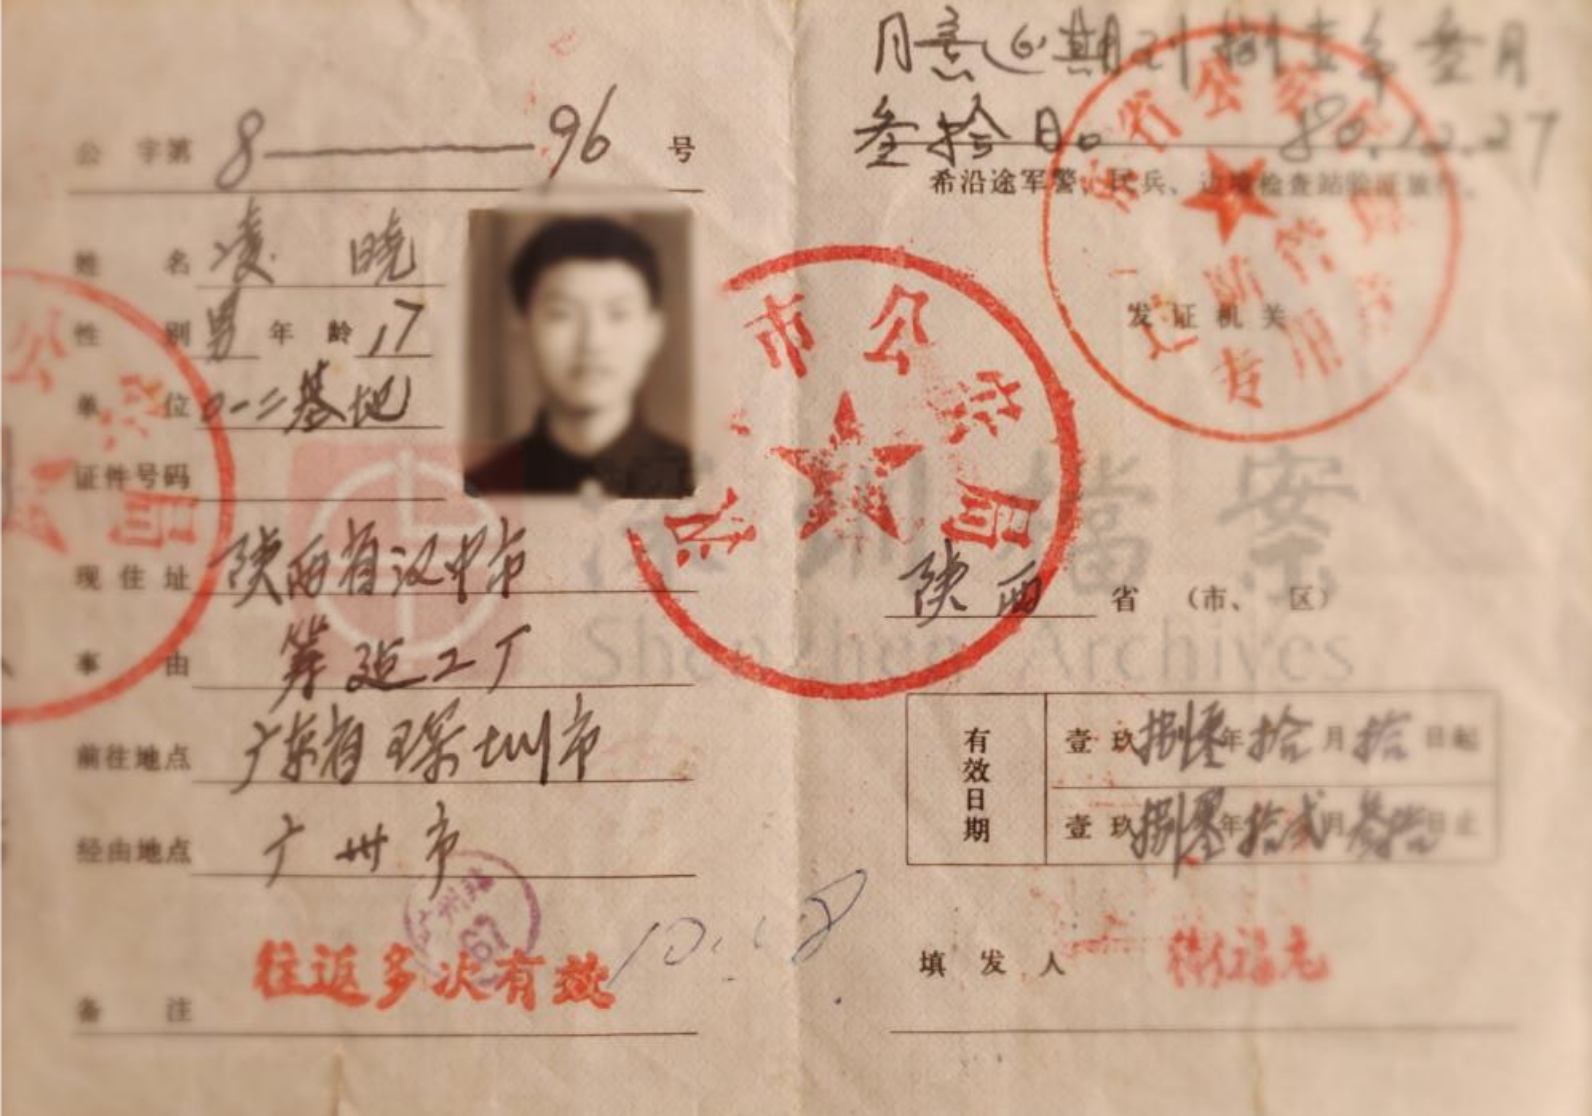 公 字第 8——96 号
姓 名 凌 晓
性 别 男 年 龄 17
单 位 0一二基地
证件号码
现住址 陕西省汉中市
事 由 筹建工厂
前往地点 广东省深圳市
经由地点 广州市
备 注 往返多次有效
10.18
广州 67
同意延期到捌壹年叁月
叁拾日。 80.12.27
希沿途军警、民兵、边境检查站验证放行。
发证机关
省公安
边防管
专用
市公安局
陕西 省 (市、 区)
档案
Shenzhen Archives
有效日期
壹玖捌零年拾月拾日起
壹玖捌零年拾贰月叁拾日止
填发人